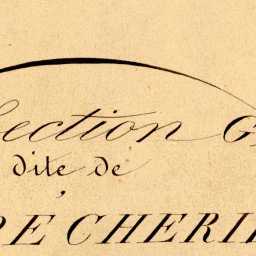 Section G
dite de
PE CHERI